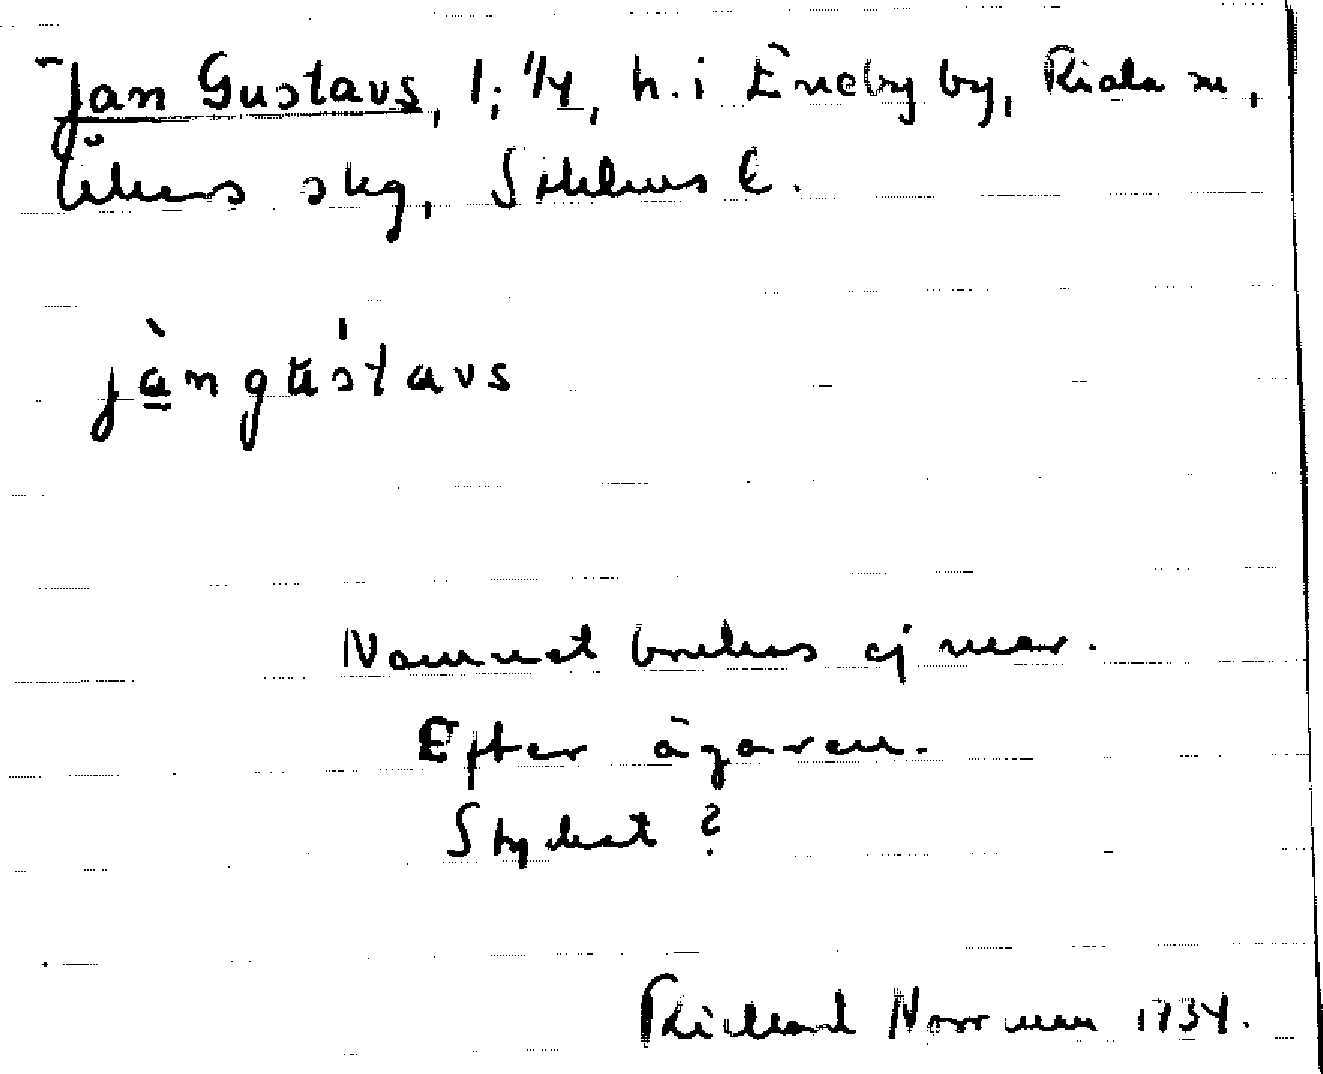 Jan Gustavs, 1, 1/4, h. i Eneby by, Riala sn,
Åkers skg, Sthlms l.
jàngústavs
Namnet brukas ej mer.
Efter ägaren.
Stycket?
Richard Norrman 1934.